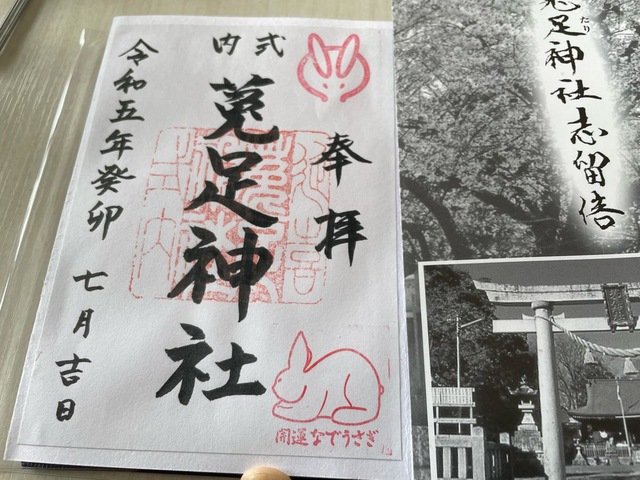 奉拝
式内
菟足神社
令和五年癸卯 七月吉日
開運なでうさぎ
菟足神社志留倍
たり